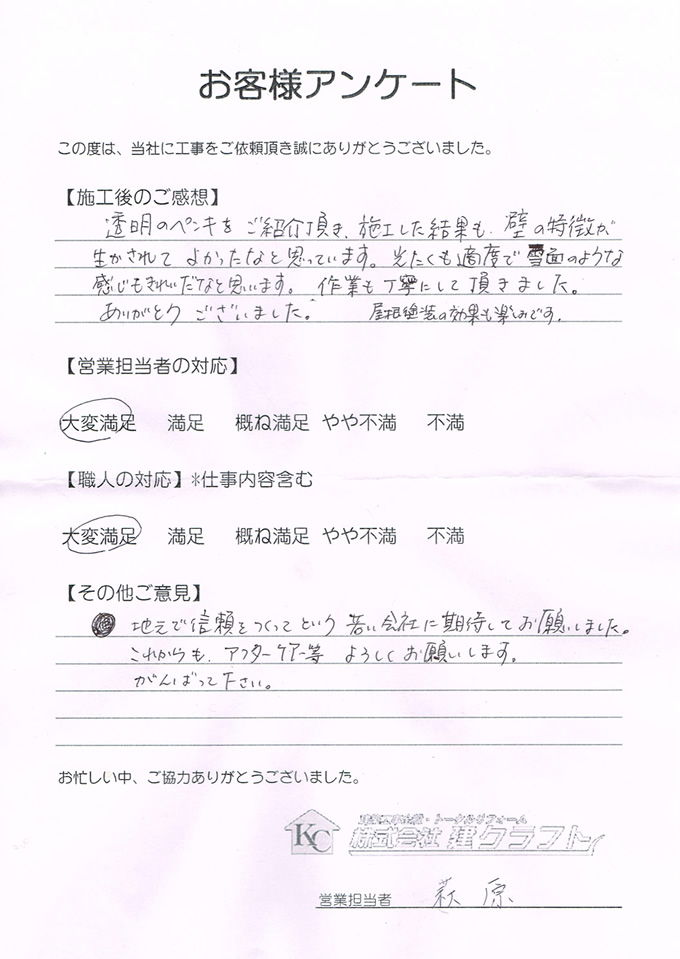 お客様アンケート
この度は、当社に工事をご依頼頂き誠にありがとうございました。
【施工後のご感想】
透明のペンキをご紹介頂き、施工した結果も、壁の特徴が
生かされてよかったなと思っています。光たくも適度で雪面のような
感じもきれいだなと思います。作業も丁寧にして頂きました。
ありがとうございました。 屋根塗装の効果も楽しみです。
【営業担当者の対応】
大変満足 満足 概ね満足 やや不満 不満
【職人の対応】*仕事内容含む
大変満足 満足 概ね満足 やや不満 不満
【その他ご意見】
地元で信頼をつくってという若い会社に期待してお願いしました。
これからも、アフターケアー等よろしくお願いします。
がんばって下さい。
お忙しい中、ご協力ありがとうございました。
KC
・トータルリフォーム
株式会社 建クラフト
営業担当者 萩原